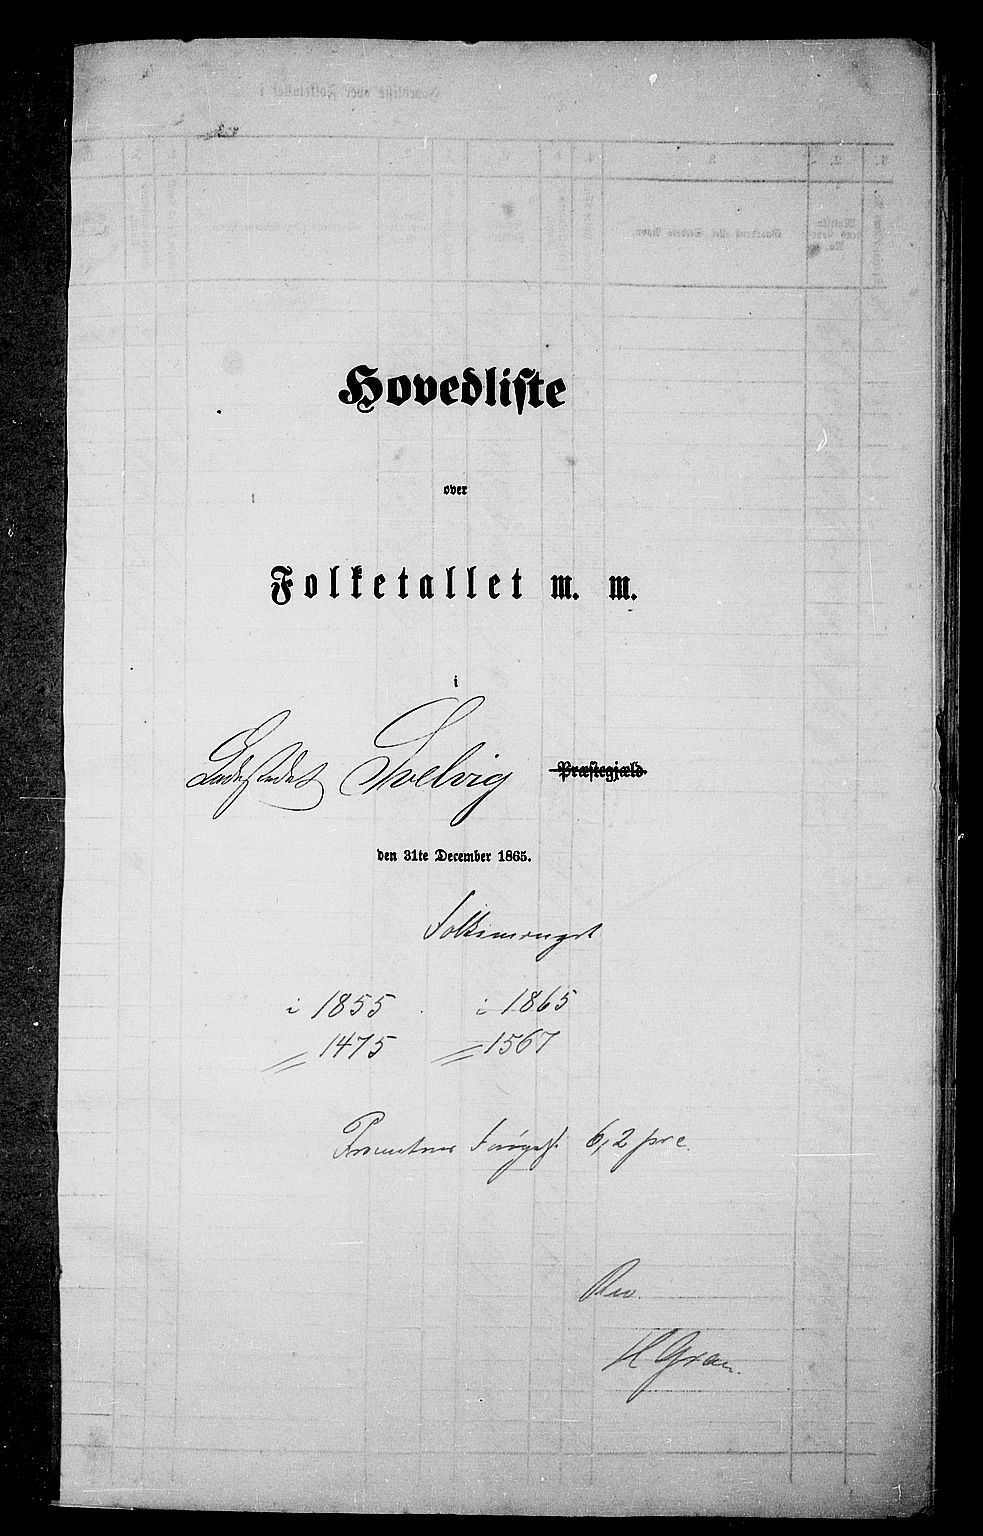 Hovedliste
over
Folketallet m. m.
i
Ladestedet Svelvig Præstegjæld.
den 31te December 1865.
Folkemængdt
i 1855 i 1865
1475 1567
6,2 pre.
Rev.
H Gran.